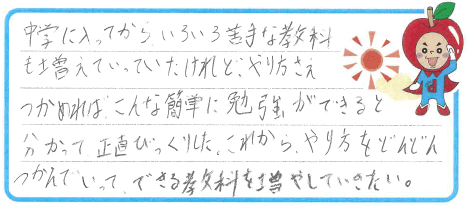 中学に入ってからいろいろ苦手な教科
も増えていっていたけれど、やり方さえ
つかめれば、こんな簡単に勉強ができると
分かって正直びっくりした。これから、やり方をどんどん
つかんでいって、できる教科を増やしていきたい。
d